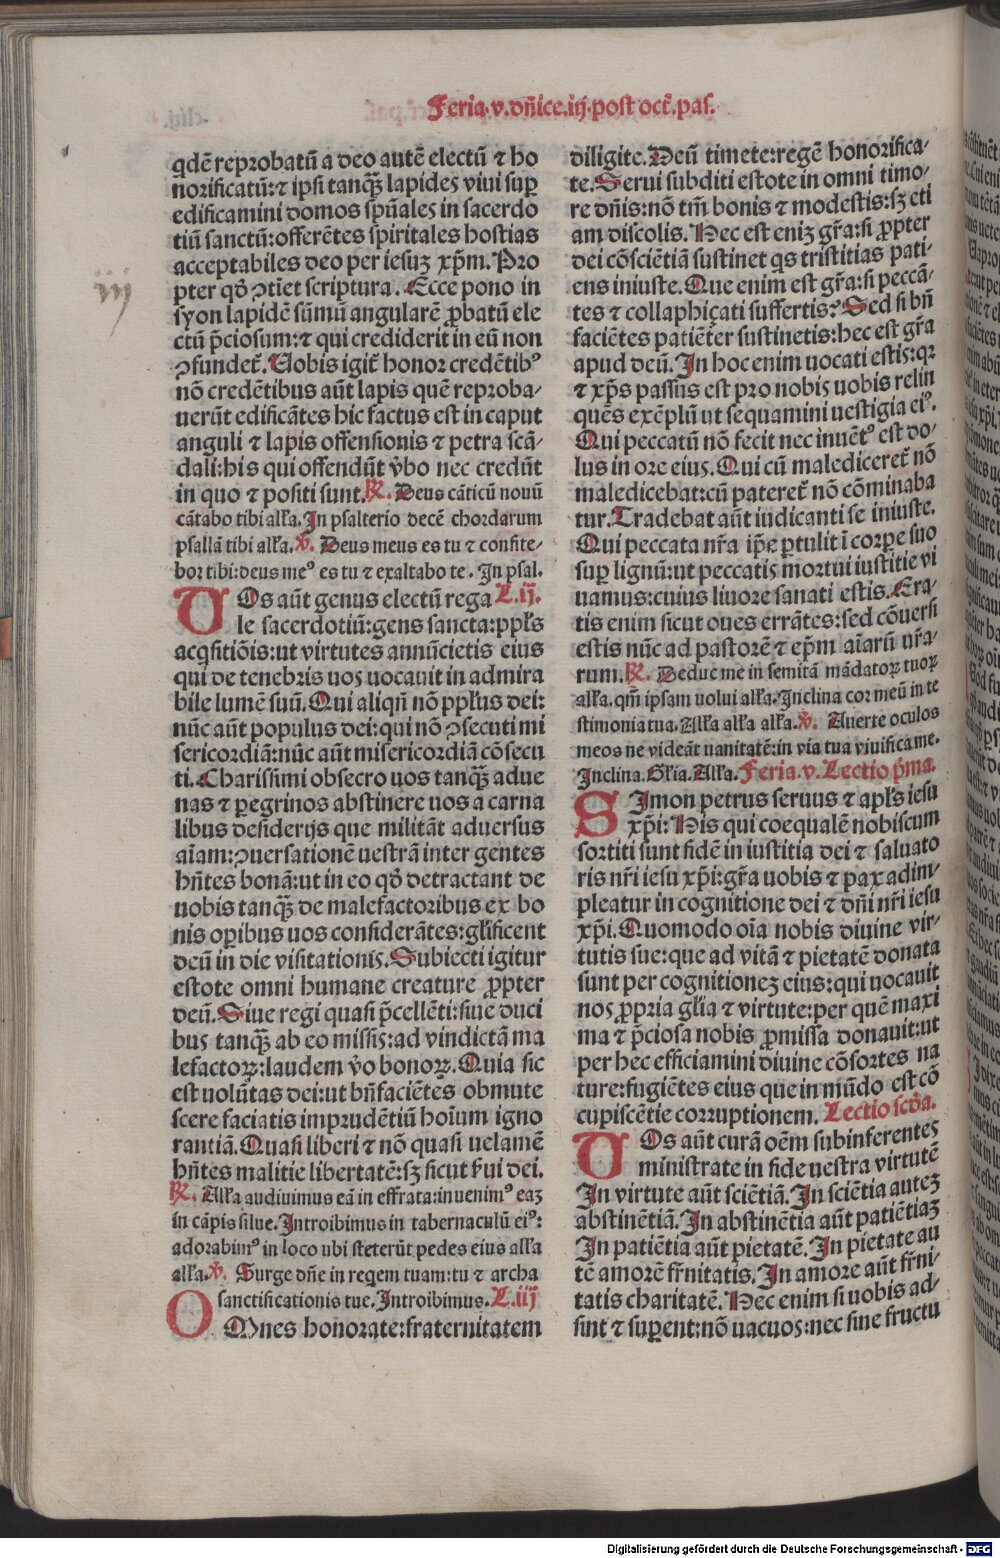 Feria.v.dn̄ice.iij.post oct̄.pas.
iij
qdē reprobatū a deo autē electū ⁊ ho
norificatū:⁊ ipsi tanqȝ̄ lapides viui suꝑ
edificamini domos spūales in sacerdo
tiū sanctū:offerētes spiritales hostias
acceptabiles deo per iesuȝ xp̄m. Pro
pter qð ꝯtiet scriptura. Ecce pono in
syon lapidē sūmū angularē ꝓbatū ele
ctū p̄ciosum:⁊ qui crediderit in eū non
ꝯfundet̄. Uobis igit̄ honor credētibꝰ
nō credētibus aūt lapis quē reproba-
uerūt edificātes hic factus est in caput
anguli ⁊ lapis offensionis ⁊ petra scā-
dali:his qui offendūt v̄bo nec credūt
in quo ⁊ positi sunt. ℟. Deus cāticū nouū
cātabo tibi all'a. In psalterio decē chordarum
psallā tibi all'a. ℣. Deus meus es tu ⁊ confite-
bor tibi:deus meꝰ es tu ⁊ exaltabo te. In psal.
UOs aūt genus electū rega L.ij.
le sacerdotiū:gens sancta:pp'ls
acqsitiōis:ut virtutes annūcietis eius
qui de tenebris uos uocauit in admira
bile lumē suū. Qui aliqn̄ nō pp'lus dei:
nūc aūt populus dei:qui nō ꝯsecuti mi
sericordiā:nūc aūt misericordiā cōsecu
ti. Charissimi obsecro uos tanqȝ̄ adue
nas ⁊ ꝑegrinos abstinere uos a carna
libus desiderijs que militāt aduersus
aīam:ꝯuersationē uestrā inter gentes
hn̄tes bonā:ut in eo qð detractant de
uobis tanqȝ̄ de malefactoribus ex bo
nis oꝑibus uos considerātes:gl'ificent
deū in die visitationis. Subiecti igitur
estote omni humane creature ꝓpter
deū. Siue regi quasi p̄cellēti:siue duci
bus tanqȝ̄ ab eo missis:ad vindictā ma
lefactoꝝ:laudem v̄o bonoꝝ. Quia sic
est uolūtas dei:ut bn̄faciētes obmute
scere faciatis imprudētiū hoīum igno
rantiā. Quasi liberi ⁊ nō quasi uelamē
hn̄tes malitie libertatē:sȝ sicut s̄ui dei.
℟. All'a audiuimus eā in effrata:inuenimꝰ eaȝ
in cāpis silue. Introibimus in tabernaculū eiꝰ:
adorabimꝰ in loco ubi steterūt pedes eius all'a
all'a. ℣. Surge dn̄e in reqem tuam:tu ⁊ archa
sanctificationis tue. Introibimus. L.iij
OMnes honorate:fraternitatem
diligite. Deū timete:regē honorifica-
te. Serui subditi estote in omni timo-
re dn̄is:nō tm̄ bonis ⁊ modestis:sȝ eti
am discolis. Hec est eniȝ gr̄a:si ꝓpter
dei cōsciētiā sustinet qs tristitias pati-
ens iniuste. Que enim est gr̄a:si peccā-
tes ⁊ collaphiçati suffertis? Sed si bn̄
faciētes patiēter sustinetis:hec est gr̄a
apud deū. In hoc enim uocati estis:qꝛ
⁊ xp̄s passus est pro nobis uobis relin
quēs exēplū ut sequamini uestigia eiꝰ.
Qui peccatū nō fecit nec inuētꝰ est do-
lus in ore eius. Qui cū malediceret̄ nō
maledicebat:cū pateret̄ nō cōminaba
tur. Tradebat aūt iudicanti se iniuste.
Qui peccata nr̄a ip̄e ꝑtulit ī corꝑe suo
suꝑ lignū:ut peccatis mortui iustitie vi
uamus:cuius liuore sanati estis. Era-
tis enim sicut oues errātes:sed cōuersi
estis nūc ad pastorē ⁊ ep̄m aīarū ur̄a-
rum. ℟. Deduc me in semitā mādatoꝝ tuoꝝ
all'a. qm̄ ipsam uolui all'a. Inclina cor meū in te
stimonia tua. All'a all'a all'a. ℣. Auerte oculos
meos ne videāt uanitatē:in via tua viuifica me.
Inclina. Gl'ia. All'a. Feria.v. Lectio p̄ma.
SImon petrus seruus ⁊ ap'ls iesu
xp̄i: His qui coequalē nobiscum
sortiti sunt fidē in iustitia dei ⁊ saluato
ris nr̄i iesu xp̄i:gr̄a uobis ⁊ pax adim-
pleatur in cognitione dei ⁊ dn̄i nr̄i iesu
xp̄i. Quomodo oīa nobis diuine vir-
tutis sue:que ad vitā ⁊ pietatē donata
sunt per cognitioneȝ eius:qui uocauit
nos ꝓpria gl'ia ⁊ virtute:per quē maxi
ma ⁊ p̄ciosa nobis ꝓmissa donauit:ut
per hec efficiamini diuine cōsortes na
ture:fugiētes eius que in mūdo est cō
cupiscētie corruptionem. Lectio scd̄a.
UOs aūt curā oēm subinferentes
ministrate in fide uestra virtutē
In virtute aūt sciētiā. In sciētia auteȝ
abstinētiā. In abstinētia aūt patiētiaȝ
In patiētia aūt pietatē. In pietate au
tē amorē fr̄nitatis. In amore aūt fr̄ni-
tatis charitatē. Hec enim si uobis ad-
sint ⁊ suꝑent:nō uacuos:nec sine fructu
Digitalisierung gefördert durch die Deutsche Forschungsgemeinschaft - DFG